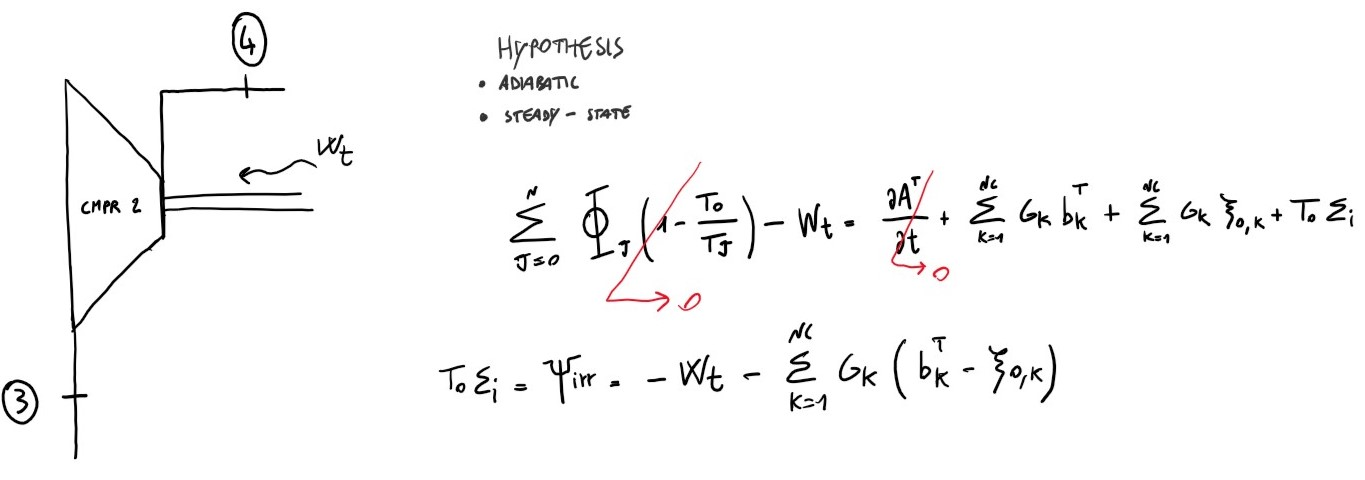 4
HYPOTHESIS
• ADIABATIC
• STEADY - STATE
Wt
CMPR 2
∑_{J=0}^{N} Φ_J (1 - T₀/T_J) - Wt = ∂A^T/∂t + ∑_{K=1}^{NC} G_K b_K^T + ∑_{K=1}^{NC} G_K ξ_{0,K} + T₀ Σ_i
→ 0
→ 0
T₀ Σ_i = Ψ_irr = - Wt - ∑_{K=1}^{NC} G_K ( b_K^T - ξ_{0,K} )
3